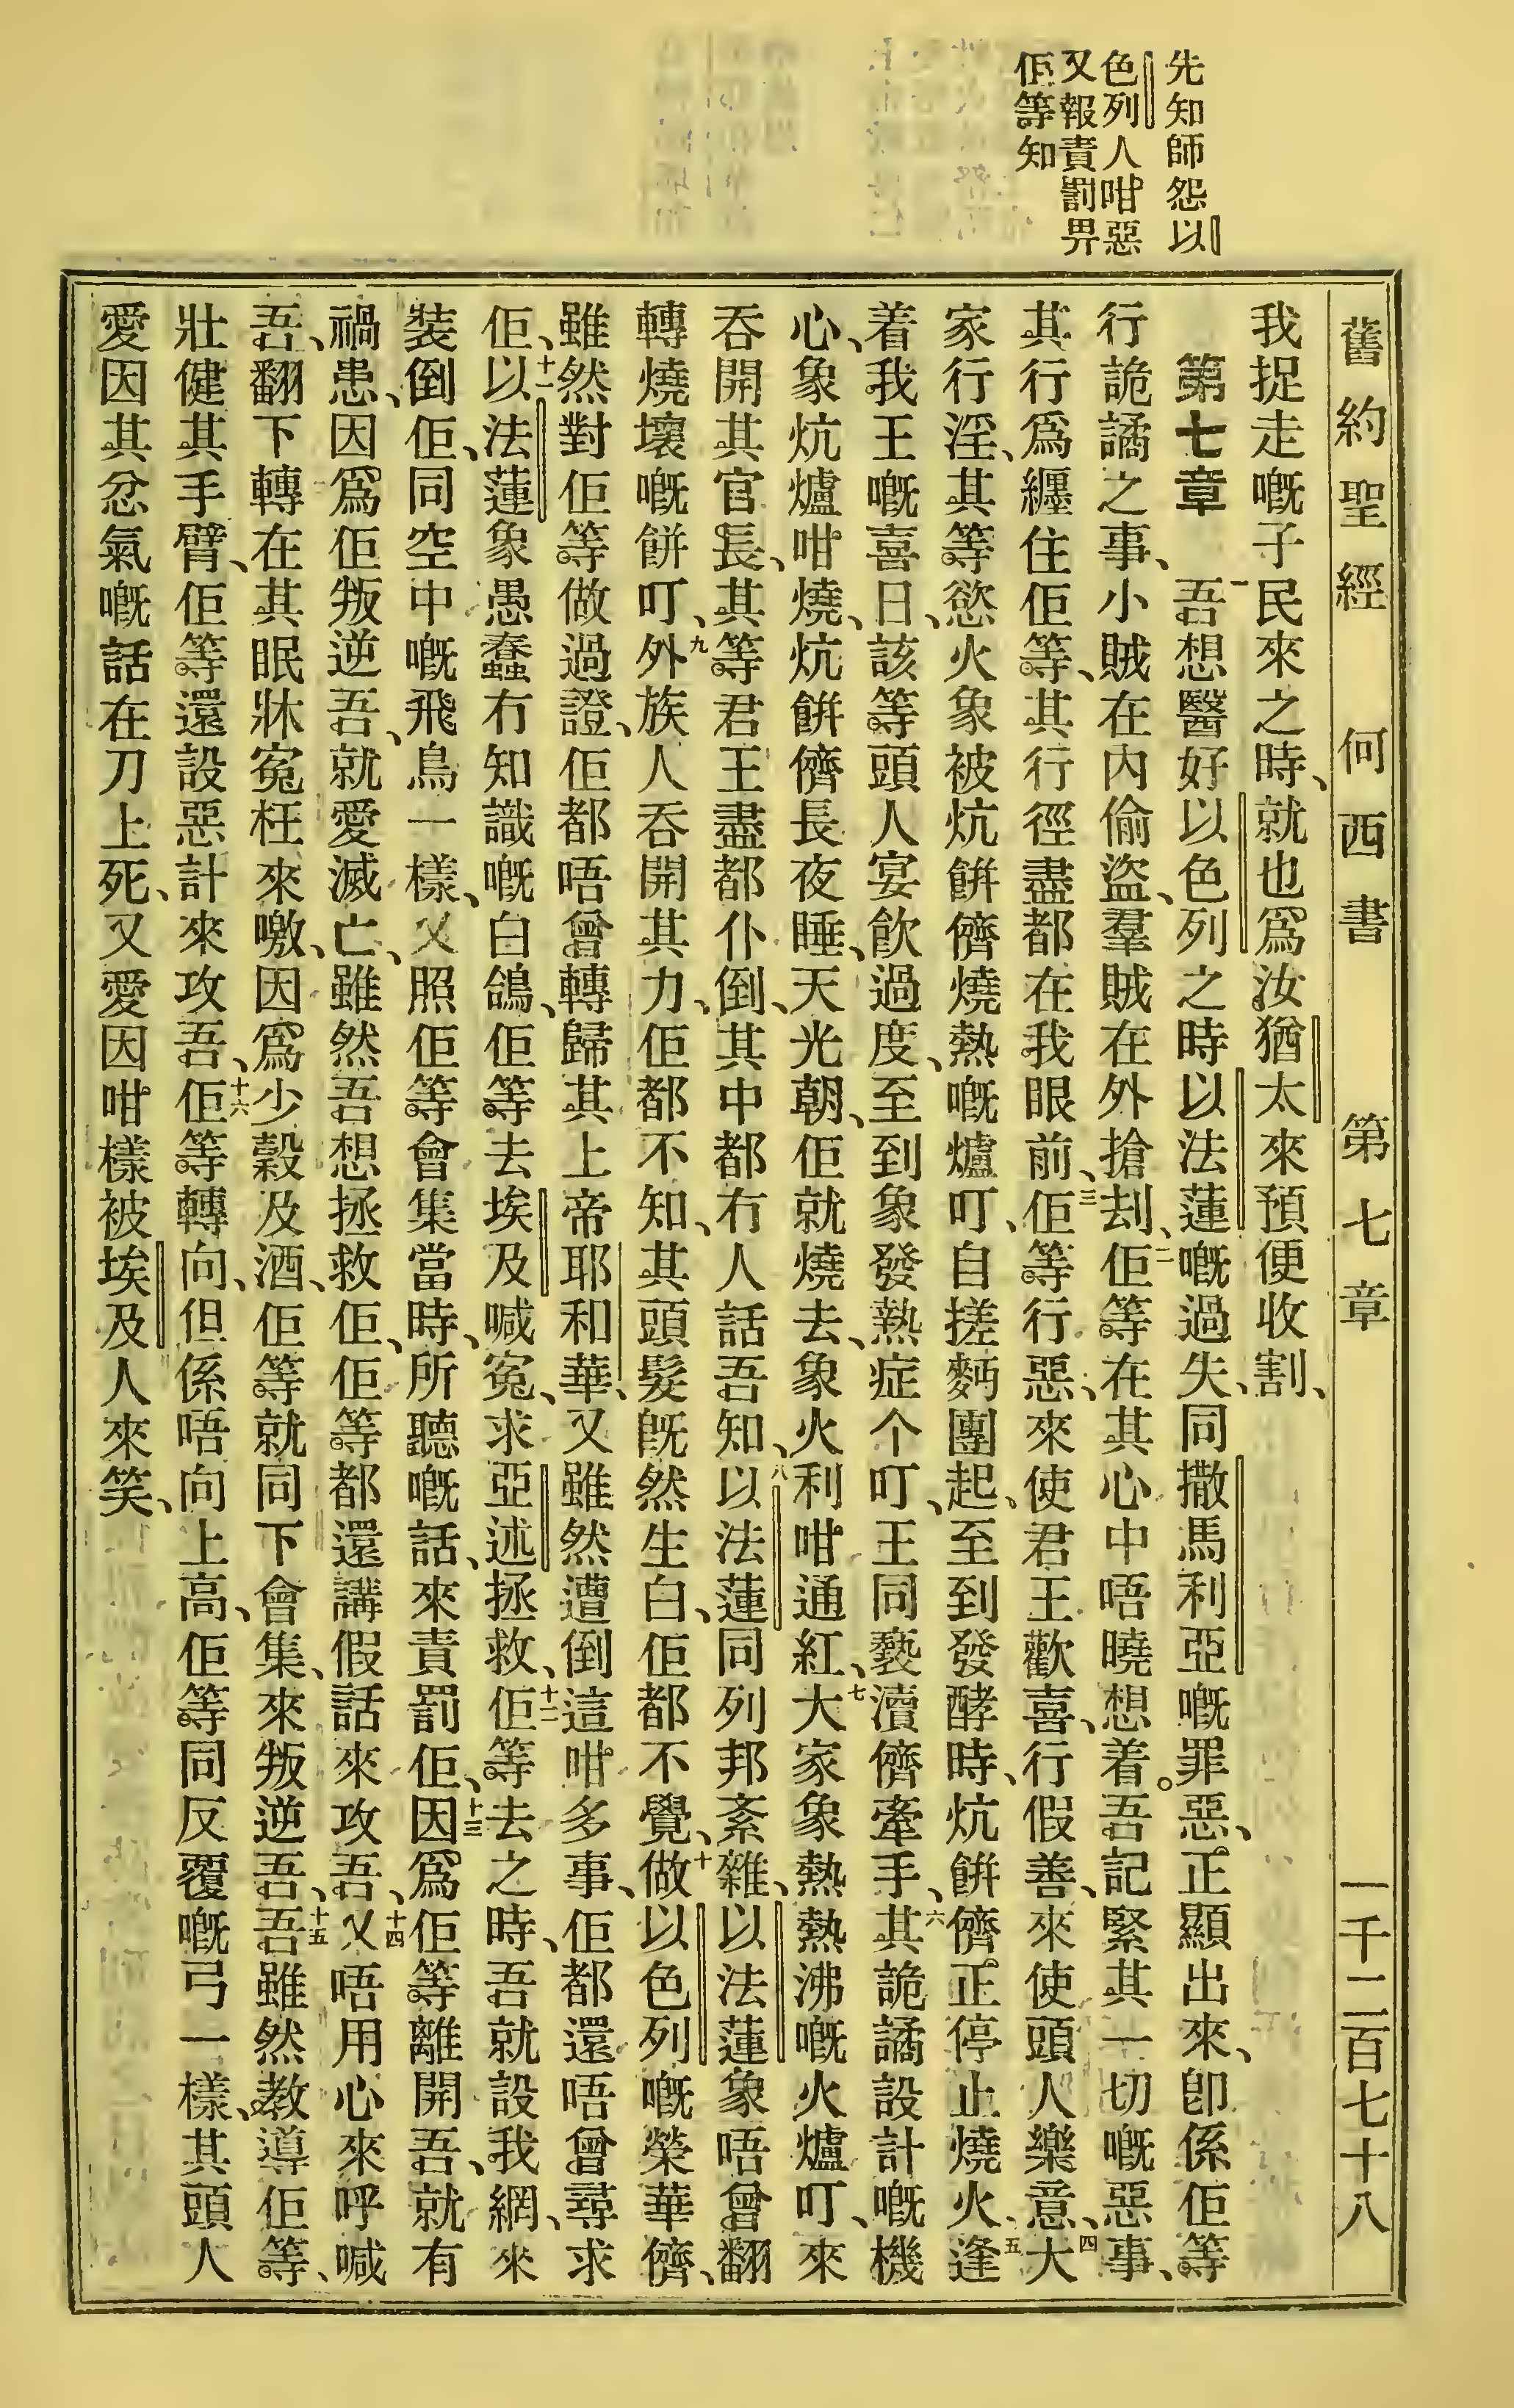 先知師怨以
色列人咁惡
又報責罰畀
佢等知
舊約聖經 何西書 第七章 一千二百七十八
我捉走嘅子民來之時、就也爲汝猶太來預便收割、
第七章 一吾想醫好以色列之時以法蓮嘅過失、同撒馬利亞嘅罪惡、正顯出來、卽係佢等
行詭譎之事、小賊在內偷盜、羣賊在外搶刦、二佢等在其心中唔曉想着。吾記緊其一切嘅惡事、
其行爲纒住佢等、其行徑盡都在我眼前、三佢等行惡、來使君王歡喜、行假善、來使頭人樂意、四大
家行淫、其等慾火象被炕餅儕燒熱嘅爐叮、自搓麪團起、至到發酵時、炕餅儕正停止燒火、五逢
着我王嘅喜日、該等頭人宴飮過度、至到象發熱症个叮、王同褻瀆儕牽手、六其詭譎設計嘅機
心、象炕爐咁燒、炕餅儕長夜睡、天光朝、佢就燒去、象火利咁通紅、七大家象熱熱沸嘅火爐叮、來
吞開其官長、其等君王盡都仆倒、其中都冇人話吾知、八以法蓮同列邦紊雜、以法蓮象唔曾翻
轉燒壞嘅餅叮、九外族人吞開其力、佢都不知、其頭髮旣然生白、佢都不覺、十做以色列嘅榮華儕、
雖然對佢等做過證、佢都唔曾轉歸其上帝耶和華、又雖然遭倒這咁多事、佢都還唔曾尋求
佢、十一以法蓮象愚蠢冇知識嘅白鴿、佢等去埃及喊冤、求亞述拯救、十二佢等去之時、吾就設我網、來
裝倒佢、同空中嘅飛鳥一樣、又照佢等會集當時、所聽嘅話、來責罰佢、十三因爲佢等離開吾、就有
禍患、因爲佢叛逆吾、就愛滅亡、雖然吾想拯救佢、佢等都還講假話來攻吾、十四又唔用心來呼喊
吾、翻下轉在其眠牀冤枉來噭、因爲少穀及酒、佢等就同下會集、來叛逆吾、十五吾雖然教導佢等、
壯健其手臂、佢等還設惡計來攻吾、十六佢等轉向、但係唔向上高、佢等同反覆嘅弓一樣、其頭人
愛因其忿氣嘅話在刀上死、又愛因咁樣被埃及人來笑、